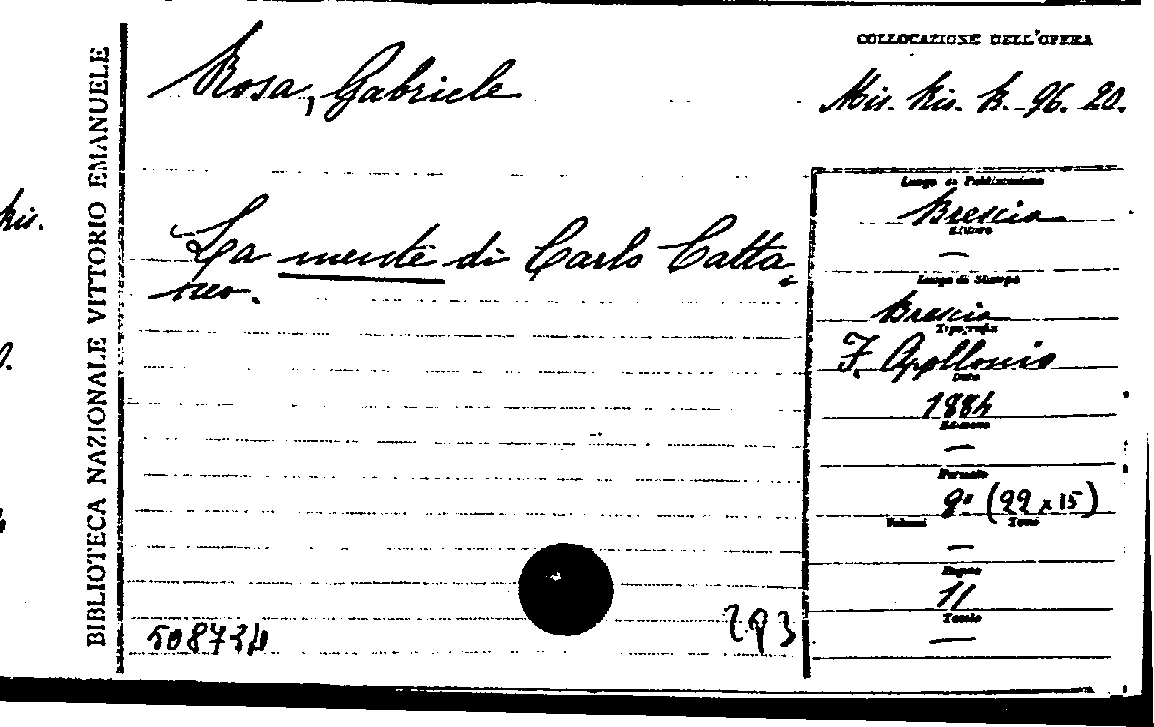 BIBLIOTECA NAZIONALE VITTORIO EMANUELE
Rosa, Gabriele
La mente di Carlo Catta-
neo.
508734
293
COLLOCAZIONE DELL'OPERA
Mis. Ris. B. 96. 20.
Luogo di Pubblicazione
Brescia
Editore
—
Luogo di Stampa
Brescia
Tipografia
F. Apollonio
Data
1884
Edizione
—
Formato
8º (22 x 15)
Volumi Tomo
—
Pagine
11
Tavole
—